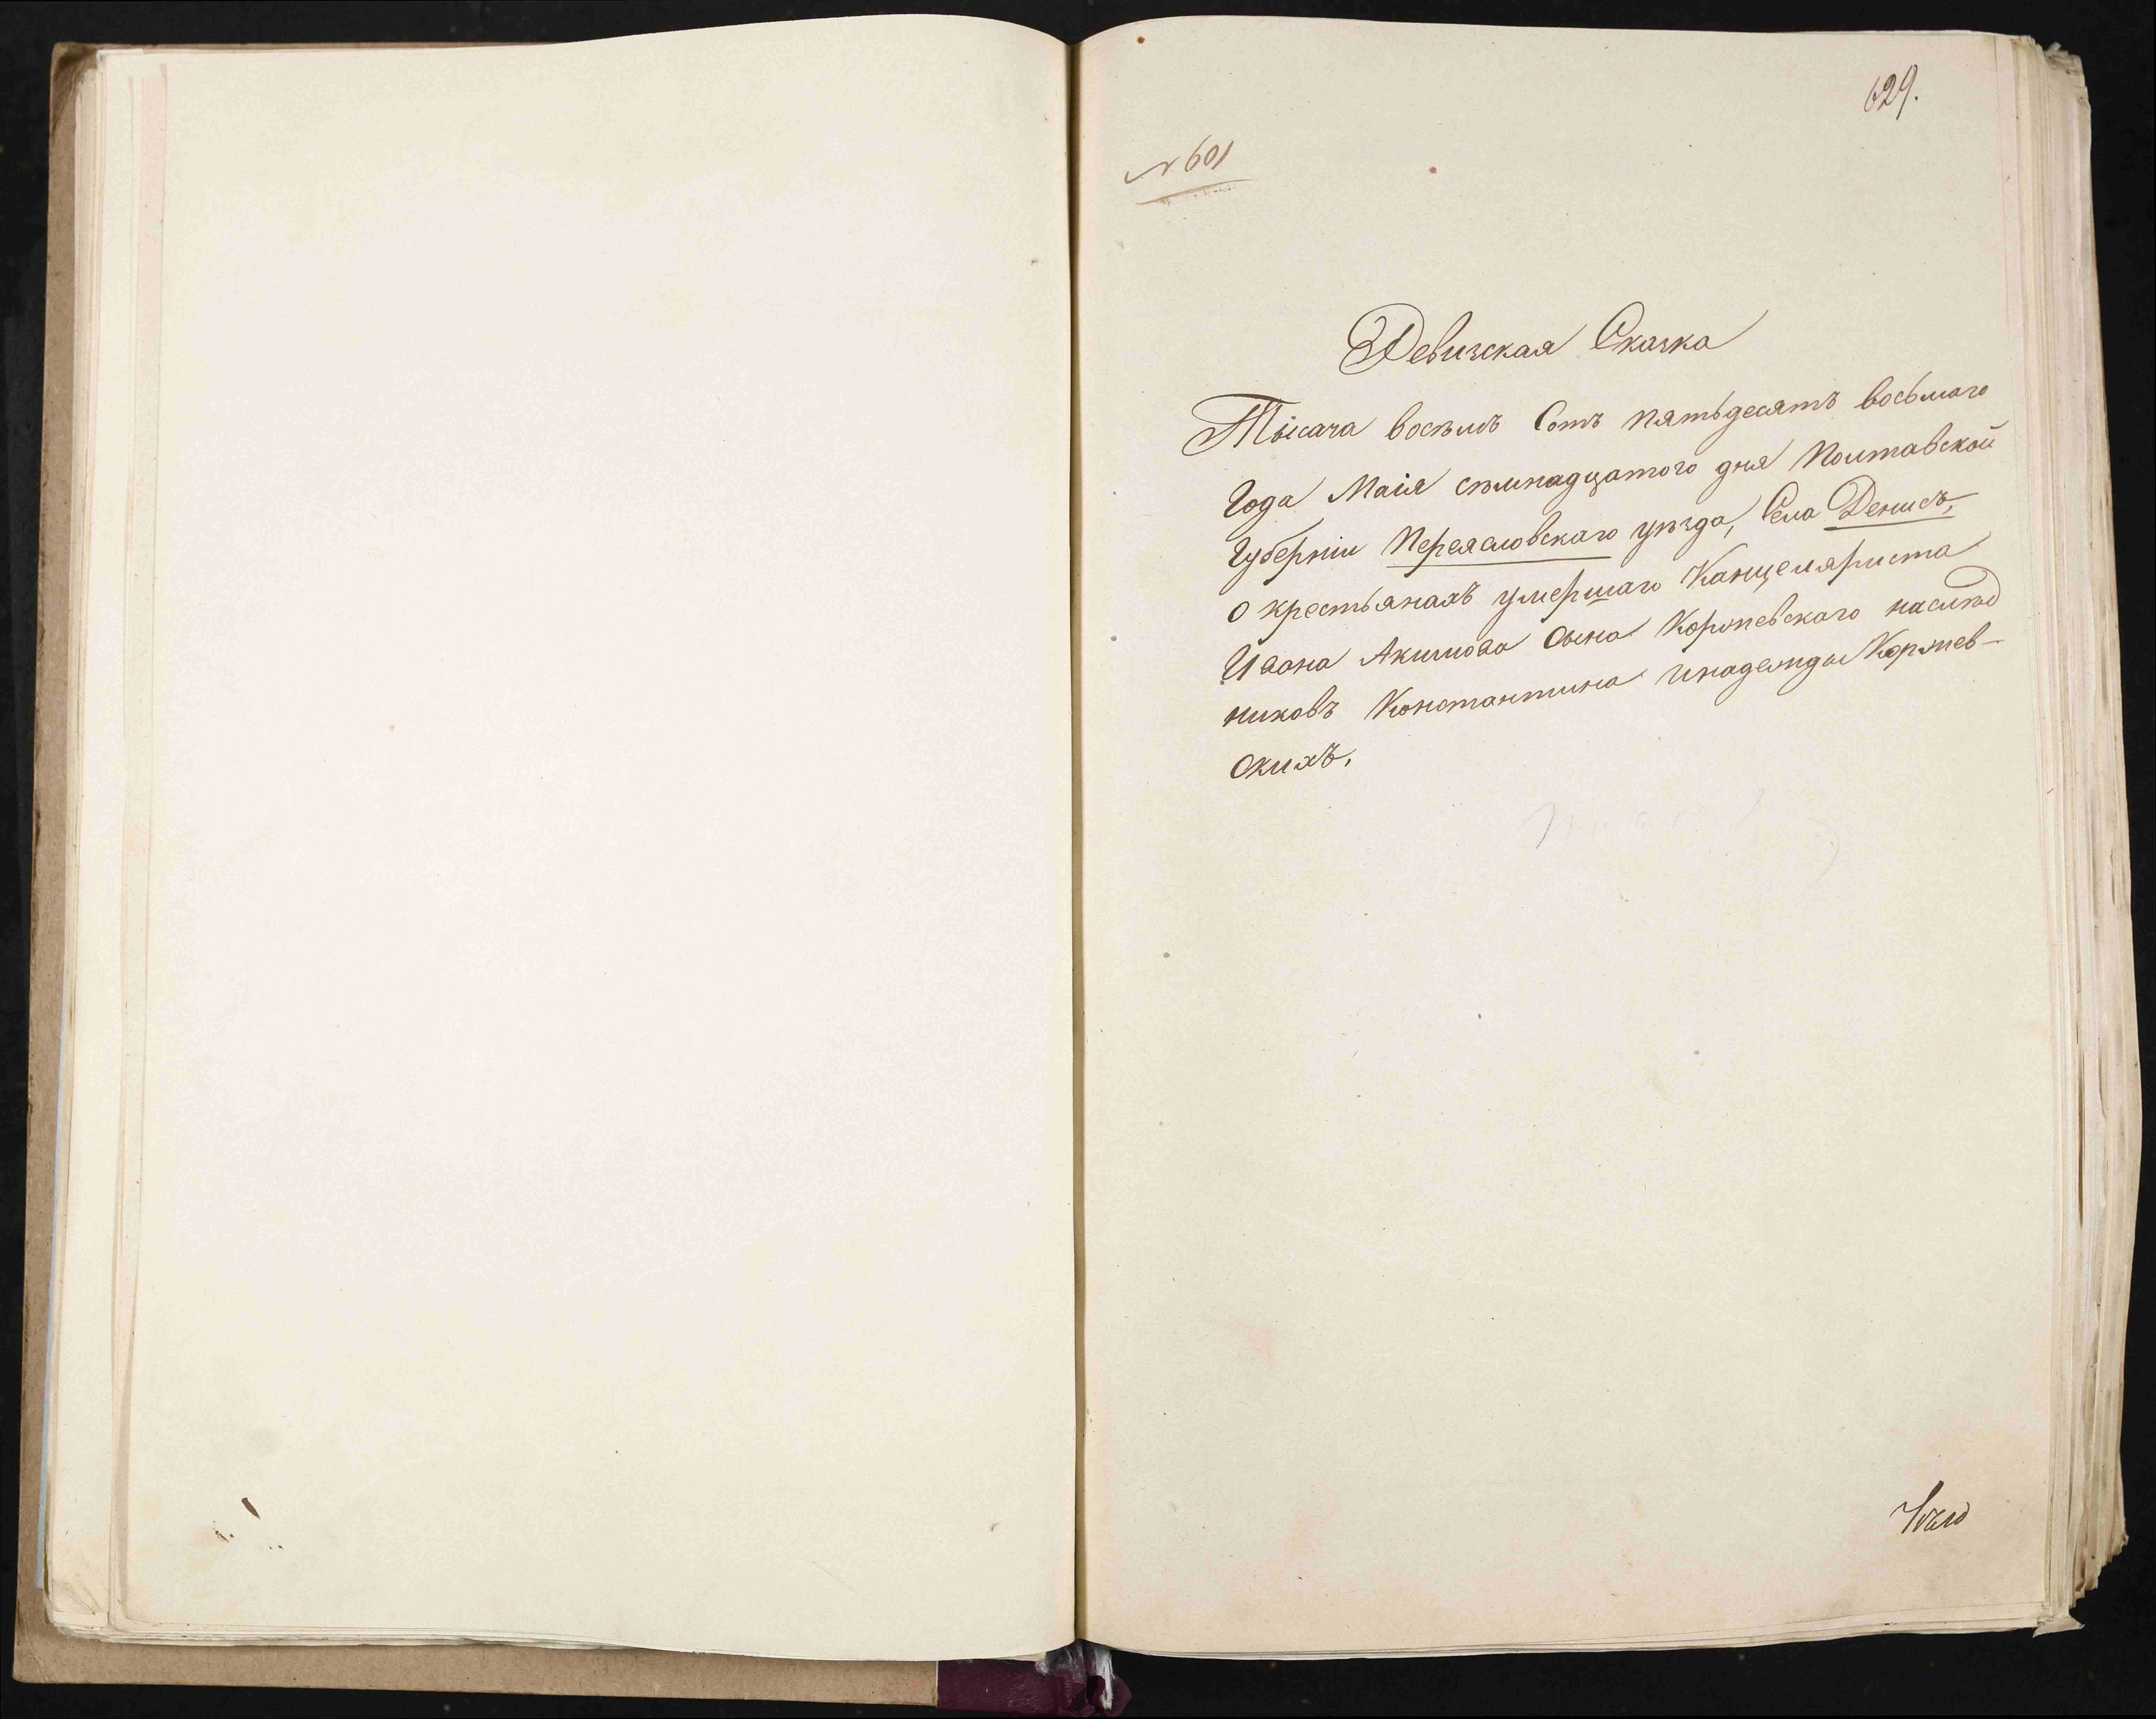 629.
№ 601
Ревизская Сказка
Тысяча восѣмъ Сотъ пятьдесятъ восьмаго
Года Маія сѣмнадцатого дня Полтавской
Губерніи Переясловскаго уѣзда, Села Денисъ,
о крестьянахъ умершаго Канцеляриста
Ивана Акимова сына Коржевскаго наслѣд
никовъ Константина инадежды Коржев-
скихъ.